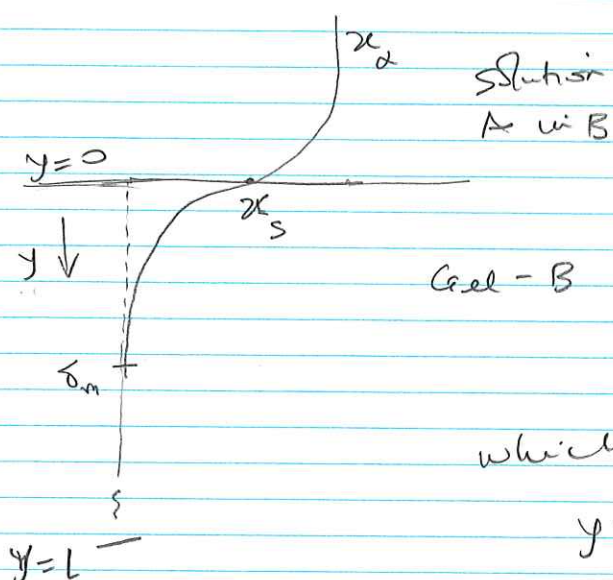 x_α
solution
A in B
y=0
x_s
y
Gel - B
δ_m
which
y
y=L